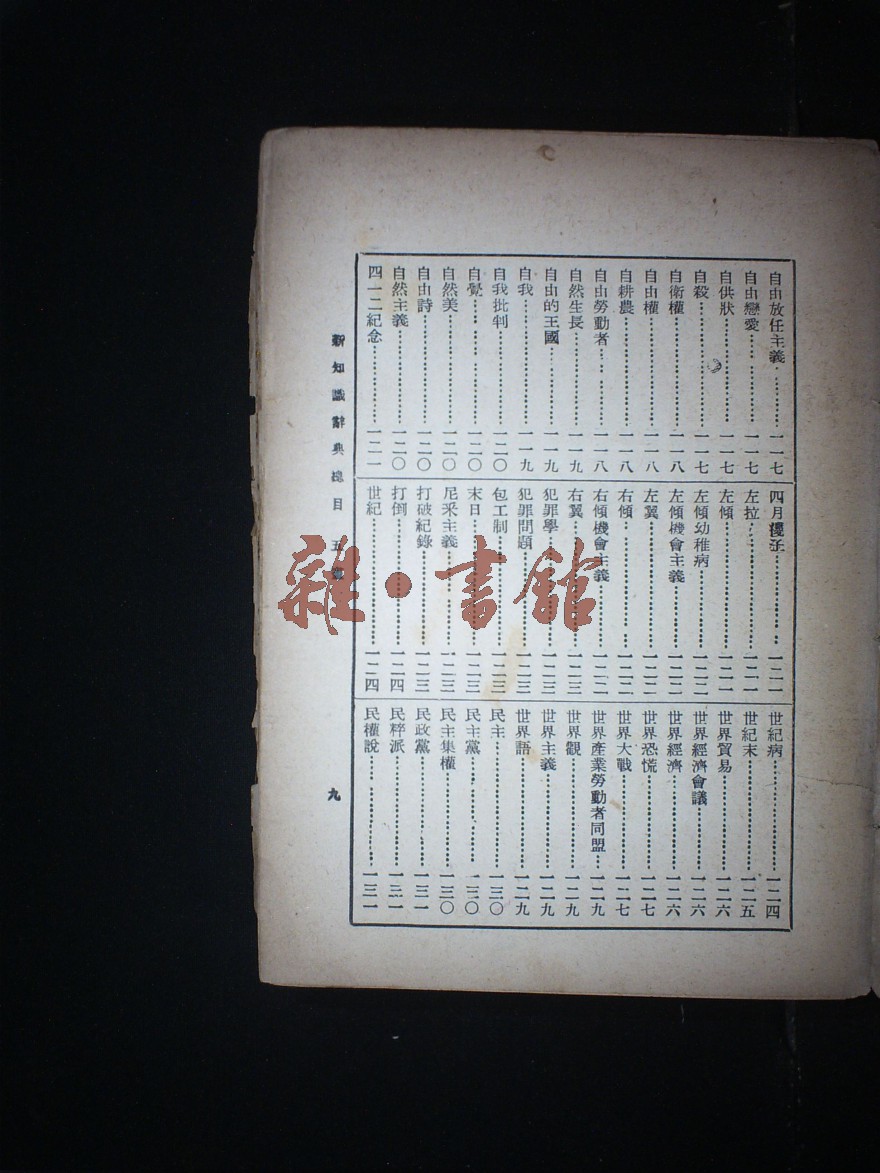 自由放任主義…………一一七
自由戀愛…………一一七
自供狀…………一一七
自殺…………一一七
自衛權…………一一八
自由權…………一一八
自耕農…………一一八
自由勞動者…………一一八
自然生長…………一一九
自由的王國…………一一九
自我…………一一九
自我批判…………一二〇
自覺…………一二〇
自然美…………一二〇
自由詩…………一二〇
自然主義…………一二〇
四一二紀念…………一二一
四月…………一二一
左拉…………一二一
左傾…………一二一
左傾幼稚病…………一二二
左傾機會主義…………一二二
左翼…………一二二
右傾…………一二二
右傾機會主義…………一二二
右翼…………一二三
犯罪學…………一二三
犯罪問題…………一二三
包工制…………一二三
末日…………一二三
尼采主義…………一二三
打破紀錄…………一二三
打倒…………一二四
世紀…………一二四
世紀病…………一二四
世紀末…………一二五
世界貿易…………一二六
世界經濟會議…………一二六
世界經濟…………一二六
世界恐慌…………一二七
世界大戰…………一二七
世界產業勞動者同盟…一二九
世界觀…………一二九
世界主義…………一二九
世界語…………一二九
民主…………一三〇
民主黨…………一三〇
民主集權…………一三〇
民政黨…………一三一
民粹派…………一三一
民權說…………一三一
新知識辭典總目 五畫
九
雜·書館